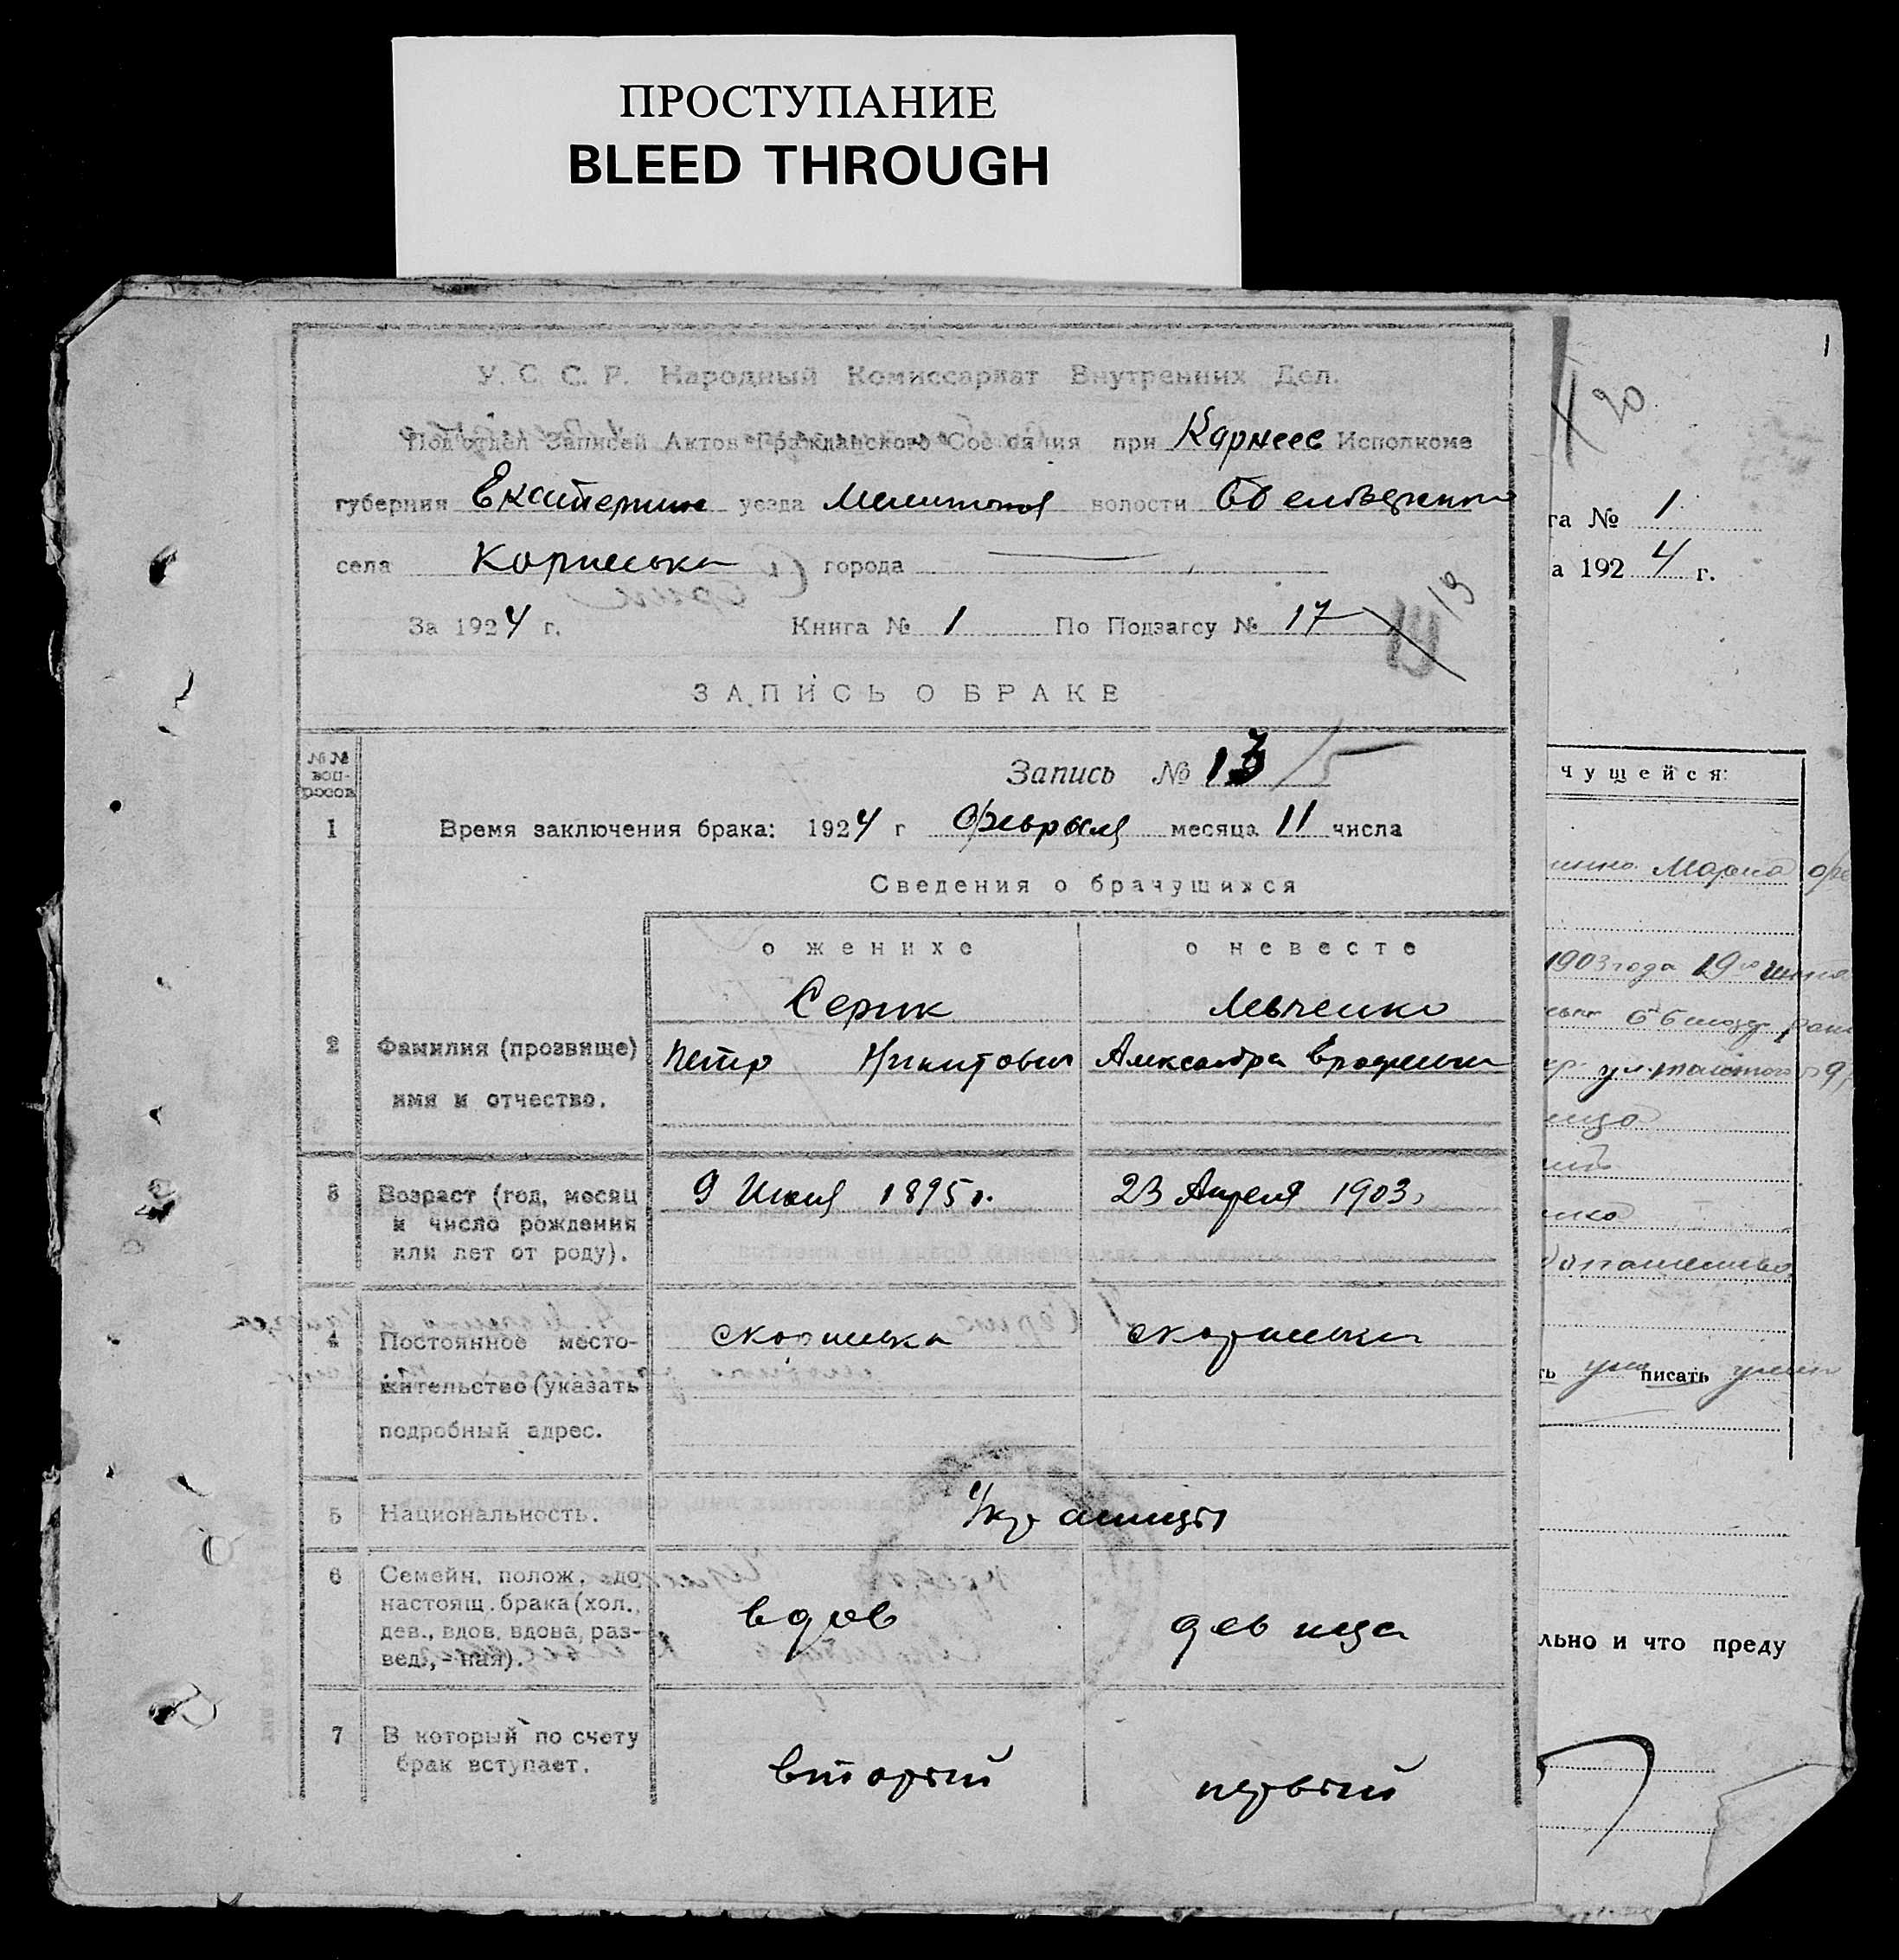 ПРОСТУПАНИЕ
BLEED THROUGH
У. С. С. Р. Народный Комиссариат Внутренних Дел.
Подотдел Записей Актов Гражданского Состояния при Корнеев Исполкоме
губернии Екатерин уезда Мелитопол волости
села города
За 1924 г. Книга № 1 По Подзагсу № 17
19
ЗАПИСЬ О БРАКЕ
№№ воп-росов
Запись № 13 / 5
1 Время заключения брака: 1924 г Февраля месяца 11 числа
Сведения о брачущихся
о женихе о невесте
Серик Левченко
2 Фамилия (прозвище) Петр Никитович Александра
имя и отчество.
3 Возраст (год, месяц 9 1895 г. 23 Апреля 1903
и число рождения
или лет от роду).
4 Постоянное место-
жительство (указать
подробный адрес.
5 Национальность. Украинцы
6 Семейн. полож. до
настоящ. брака (хол., вдов девица
дев., вдов, вдова, раз-
вед., -ная).
7 В который по счету
брак вступает. второй первый
1
20
га № 1
а 1924 г.
чущейся:
Мария
1903 года 19го
ть писать
льно и что преду